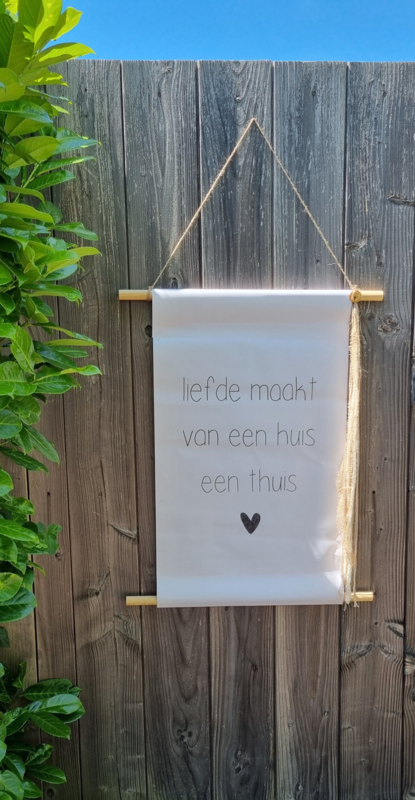 liefde maakt
van een huis
een thuis